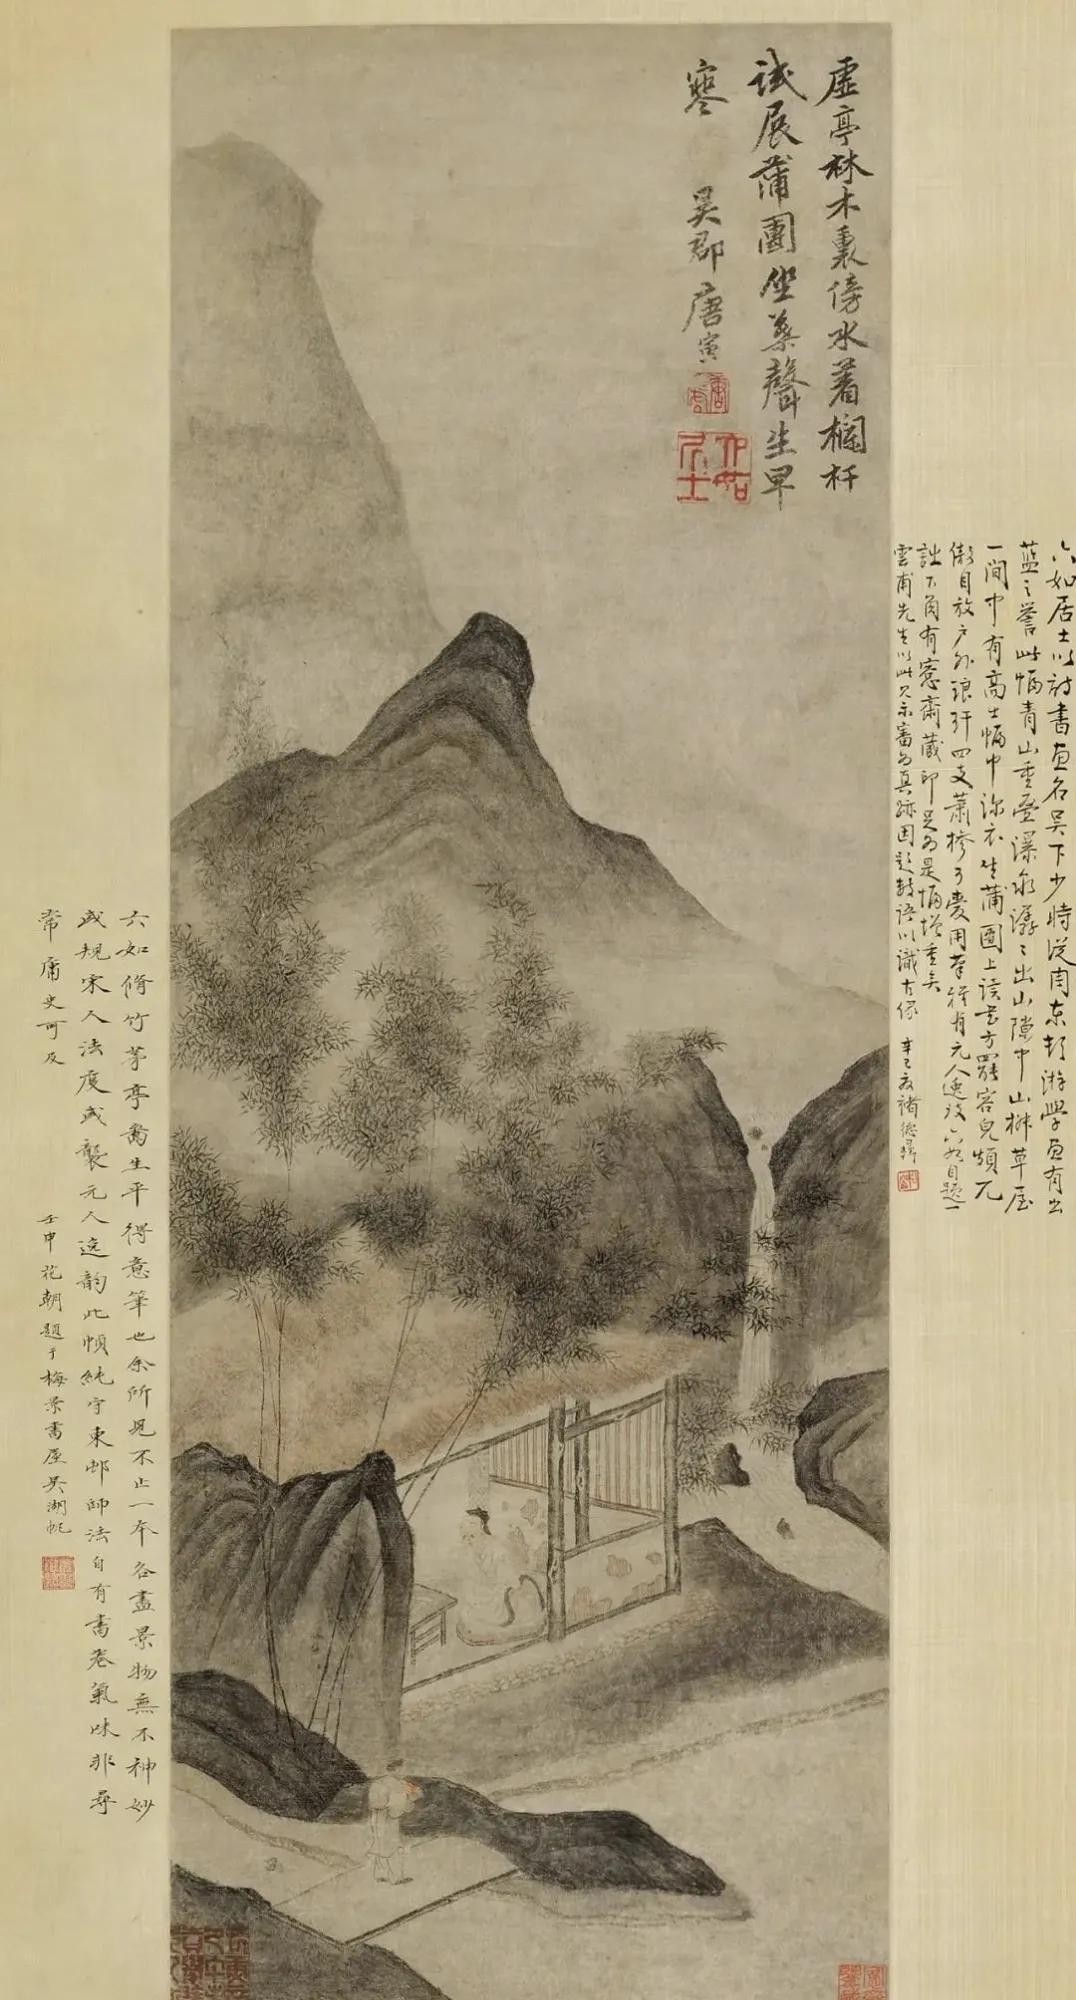 虛亭林木裏傍水著欄杆
試展蒲團坐葉聲生早
寒
吳郡唐寅
六如居士
六如居士以詩書畫名吳下少時從周東邨游學畫有出
藍之譽此幅青山重疊瀑泉潺潺出山隙中山椒草屋
一間中有高士幅巾深衣坐蒲團上讀書方罷容皃頹兀
傲自放戶外琅玕四支蕭槮可愛用筆雅有元人逸致六如自題一
詩下角有愙齋藏印足為是幅增重矣
雲甫先生以此見示審為真跡因題數語以識古緣
辛巳
褚德彝
六如脩竹茅亭為生平得意筆也余所見不止一本各盡景物無不神妙
或規宋人法度或襲元人逸韵此幀純守東邨師法自有書卷氣味非尋
常庸史可及
壬申花朝題于梅景書屋吳湖帆